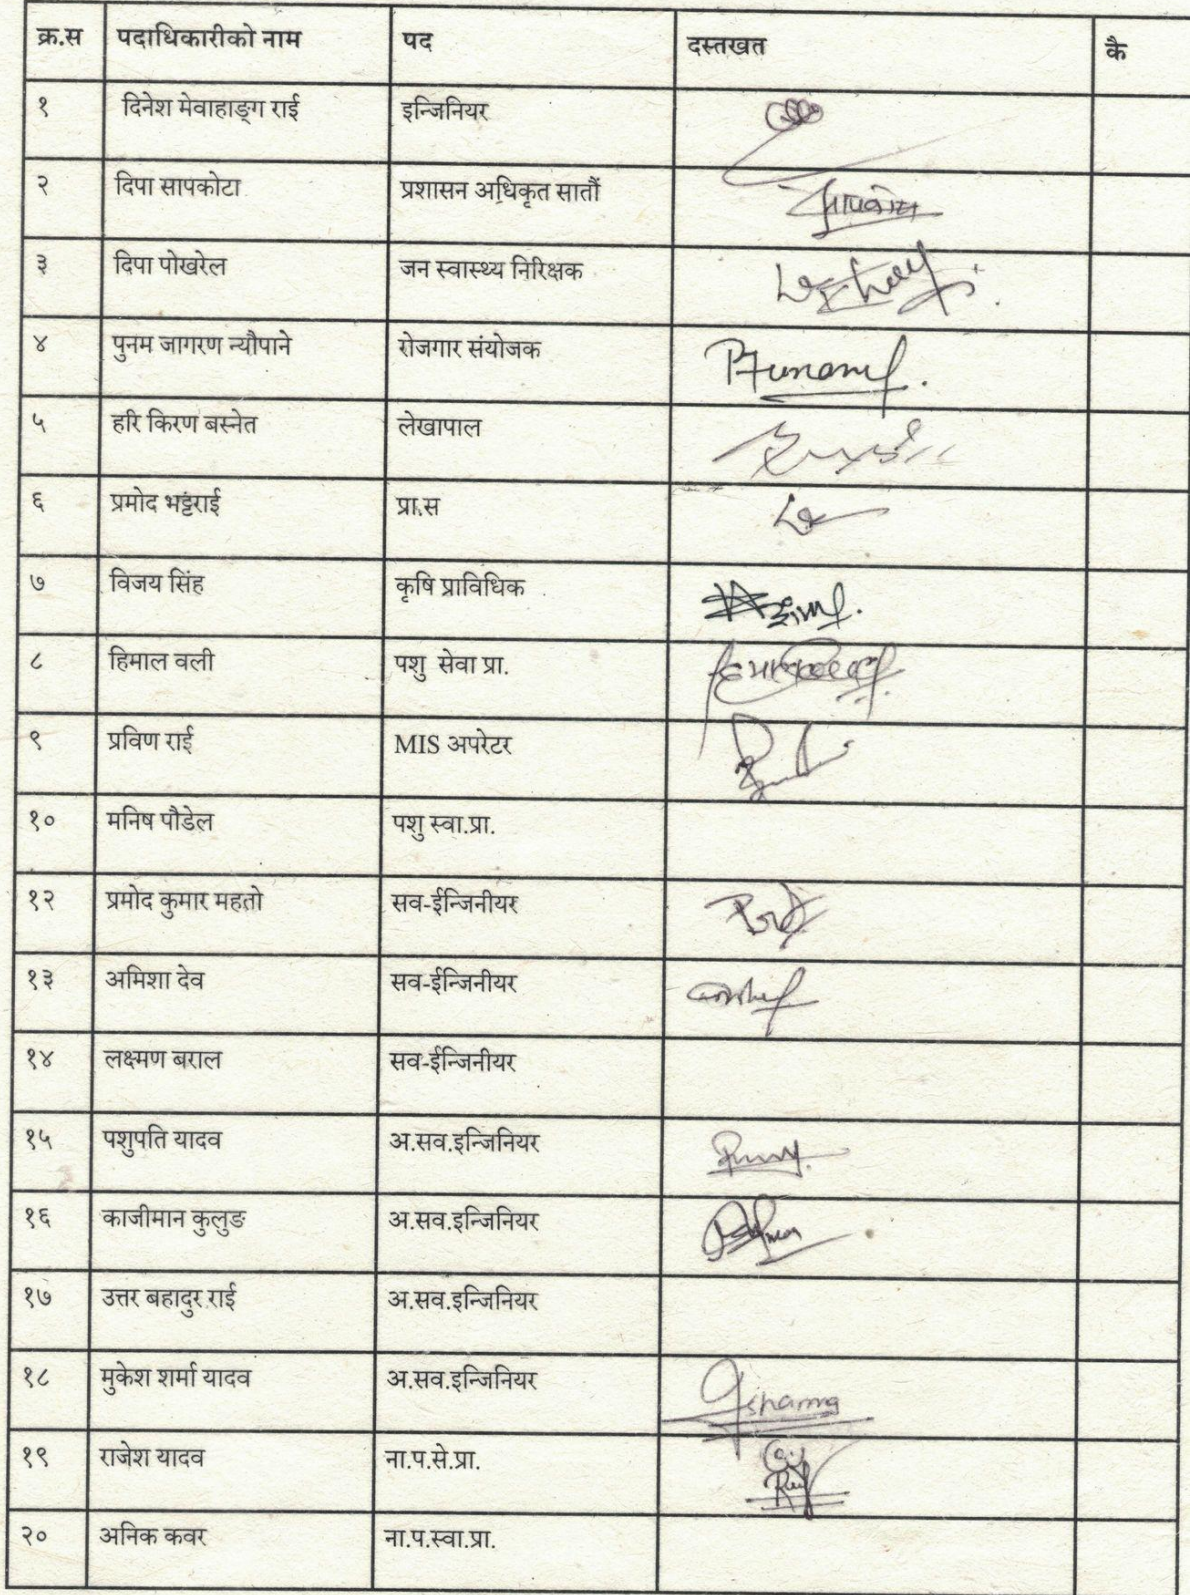 क्र.स पदाधिकारीको नाम पद दस्तखत कै
१ दिनेश मेवाहाङ्ग राई इन्जिनियर
२ दिपा सापकोटा प्रशासन अधिकृत सातौं
३ दिपा पोखरेल जन स्वास्थ्य निरिक्षक
४ पुनम जागरण न्यौपाने रोजगार संयोजक
५ हरि किरण बस्नेत लेखापाल
६ प्रमोद भट्टराई प्रा.स
७ विजय सिंह कृषि प्राविधिक
८ हिमाल वली पशु सेवा प्रा.
९ प्रविण राई MIS अपरेटर
१० मनिष पौडेल पशु स्वा.प्रा.
१२ प्रमोद कुमार महतो सव-ईन्जिनीयर
१३ अमिशा देव सव-ईन्जिनीयर
१४ लक्ष्मण बराल सव-ईन्जिनीयर
१५ पशुपति यादव अ.सव.इन्जिनियर
१६ काजीमान कुलुङ अ.सव.इन्जिनियर
१७ उत्तर बहादुर राई अ.सव.इन्जिनियर
१८ मुकेश शर्मा यादव अ.सव.इन्जिनियर
१९ राजेश यादव ना.प.से.प्रा.
२० अनिक कवर ना.प.स्वा.प्रा.